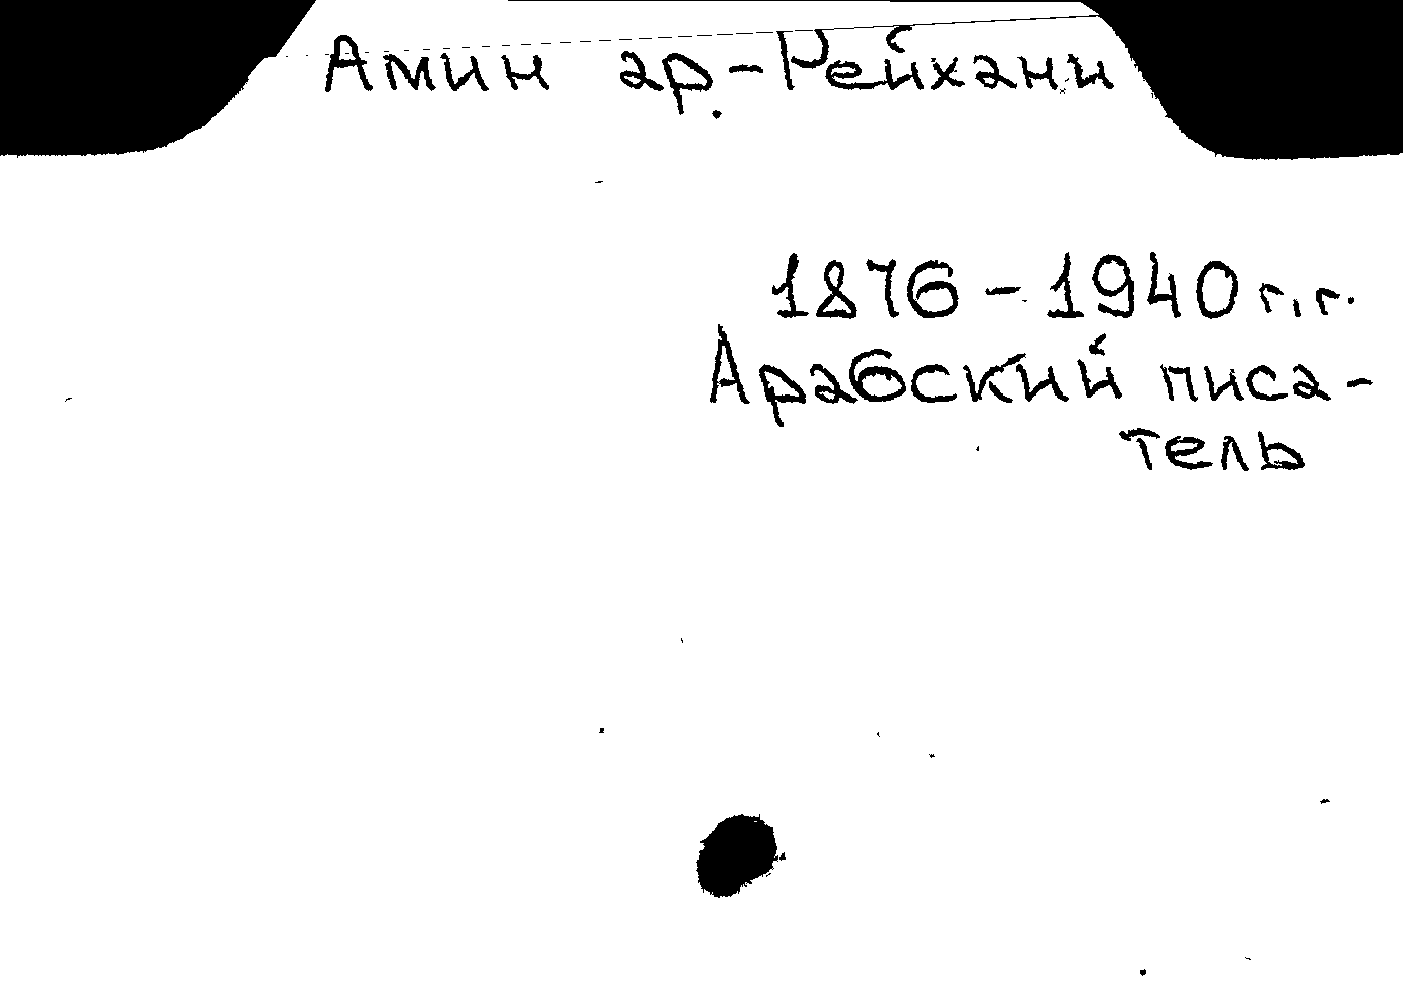 Амин ар-Рейхани
1876-1940 г.г.
Арабский писа-
тель